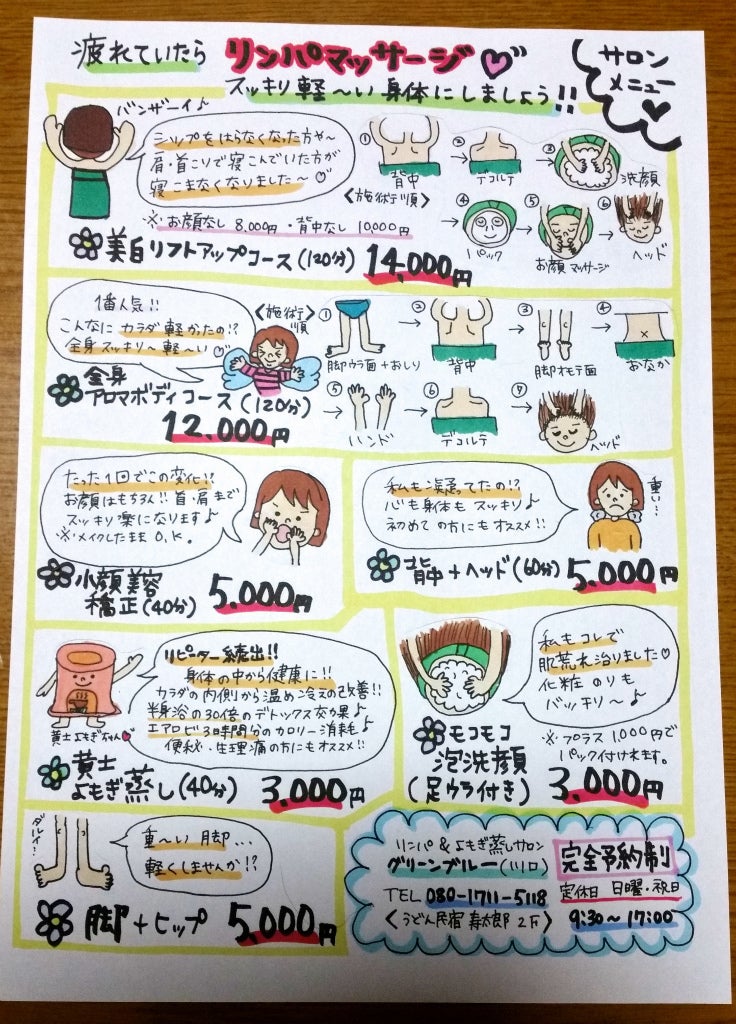 疲れていたら リンパマッサージ
スッキリ軽〜い身体にしましょう!!
サロン
メニュー
バンザーイ♪
シップをはらなくなった方や〜
肩・首こりで寝こんでいた方が
寝こまなくなりました〜
※お顔なし 8,000円・背中なし 10,000円
美白リフトアップコース(120分) 14,000円
〈施術順〉
① 背中
② デコルテ
③ 洗顔
④ パック
⑤ お顔マッサージ
⑥ ヘッド
1番人気!!
こんなにカラダ軽かったの!?
全身スッキリ〜軽〜い
全身
アロマボディコース(120分)
12,000円
〈施術順〉
① 脚ウラ面+おしり
② 背中
③ 脚オモテ面
④ おなか
⑤ ハンド
⑥ デコルテ
⑦ ヘッド
たった1回でこの変化!!
お顔はもちろん!!首・肩まで
スッキリ楽になります♪
※メイクしたままO.K.
小顔美容
矯正(40分) 5,000円
私も凝ってたの!?
心も身体もスッキリ♪
初めての方にもオススメ!!
重い…
背中+ヘッド(60分) 5,000円
リピーター続出!!
身体の中から健康に!!
カラダの内側から温め冷えの改善!!
半身浴の30倍のデトックス効果♪
エアロビ3時間分のカロリー消耗
便秘、生理痛の方にもオススメ!!
黄土よもぎちゃん
黄土
よもぎ蒸し(40分) 3,000円
私もコレで
肌荒れ治りました
化粧のりも
バッキリ〜♪
※プラス1,000円で
パック付けれます。
モコモコ
泡洗顔
(足ウラ付き) 3,000円
ダルイ…
重〜い脚…
軽くしませんか!?
脚+ヒップ 5,000円
リンパ&よもぎ蒸しサロン
グリーンブルー(川口)
TEL 080-1711-5118
〈うどん民宿 寿太郎 2F〉
完全予約制
定休日 日曜・祝日
9:30〜17:00